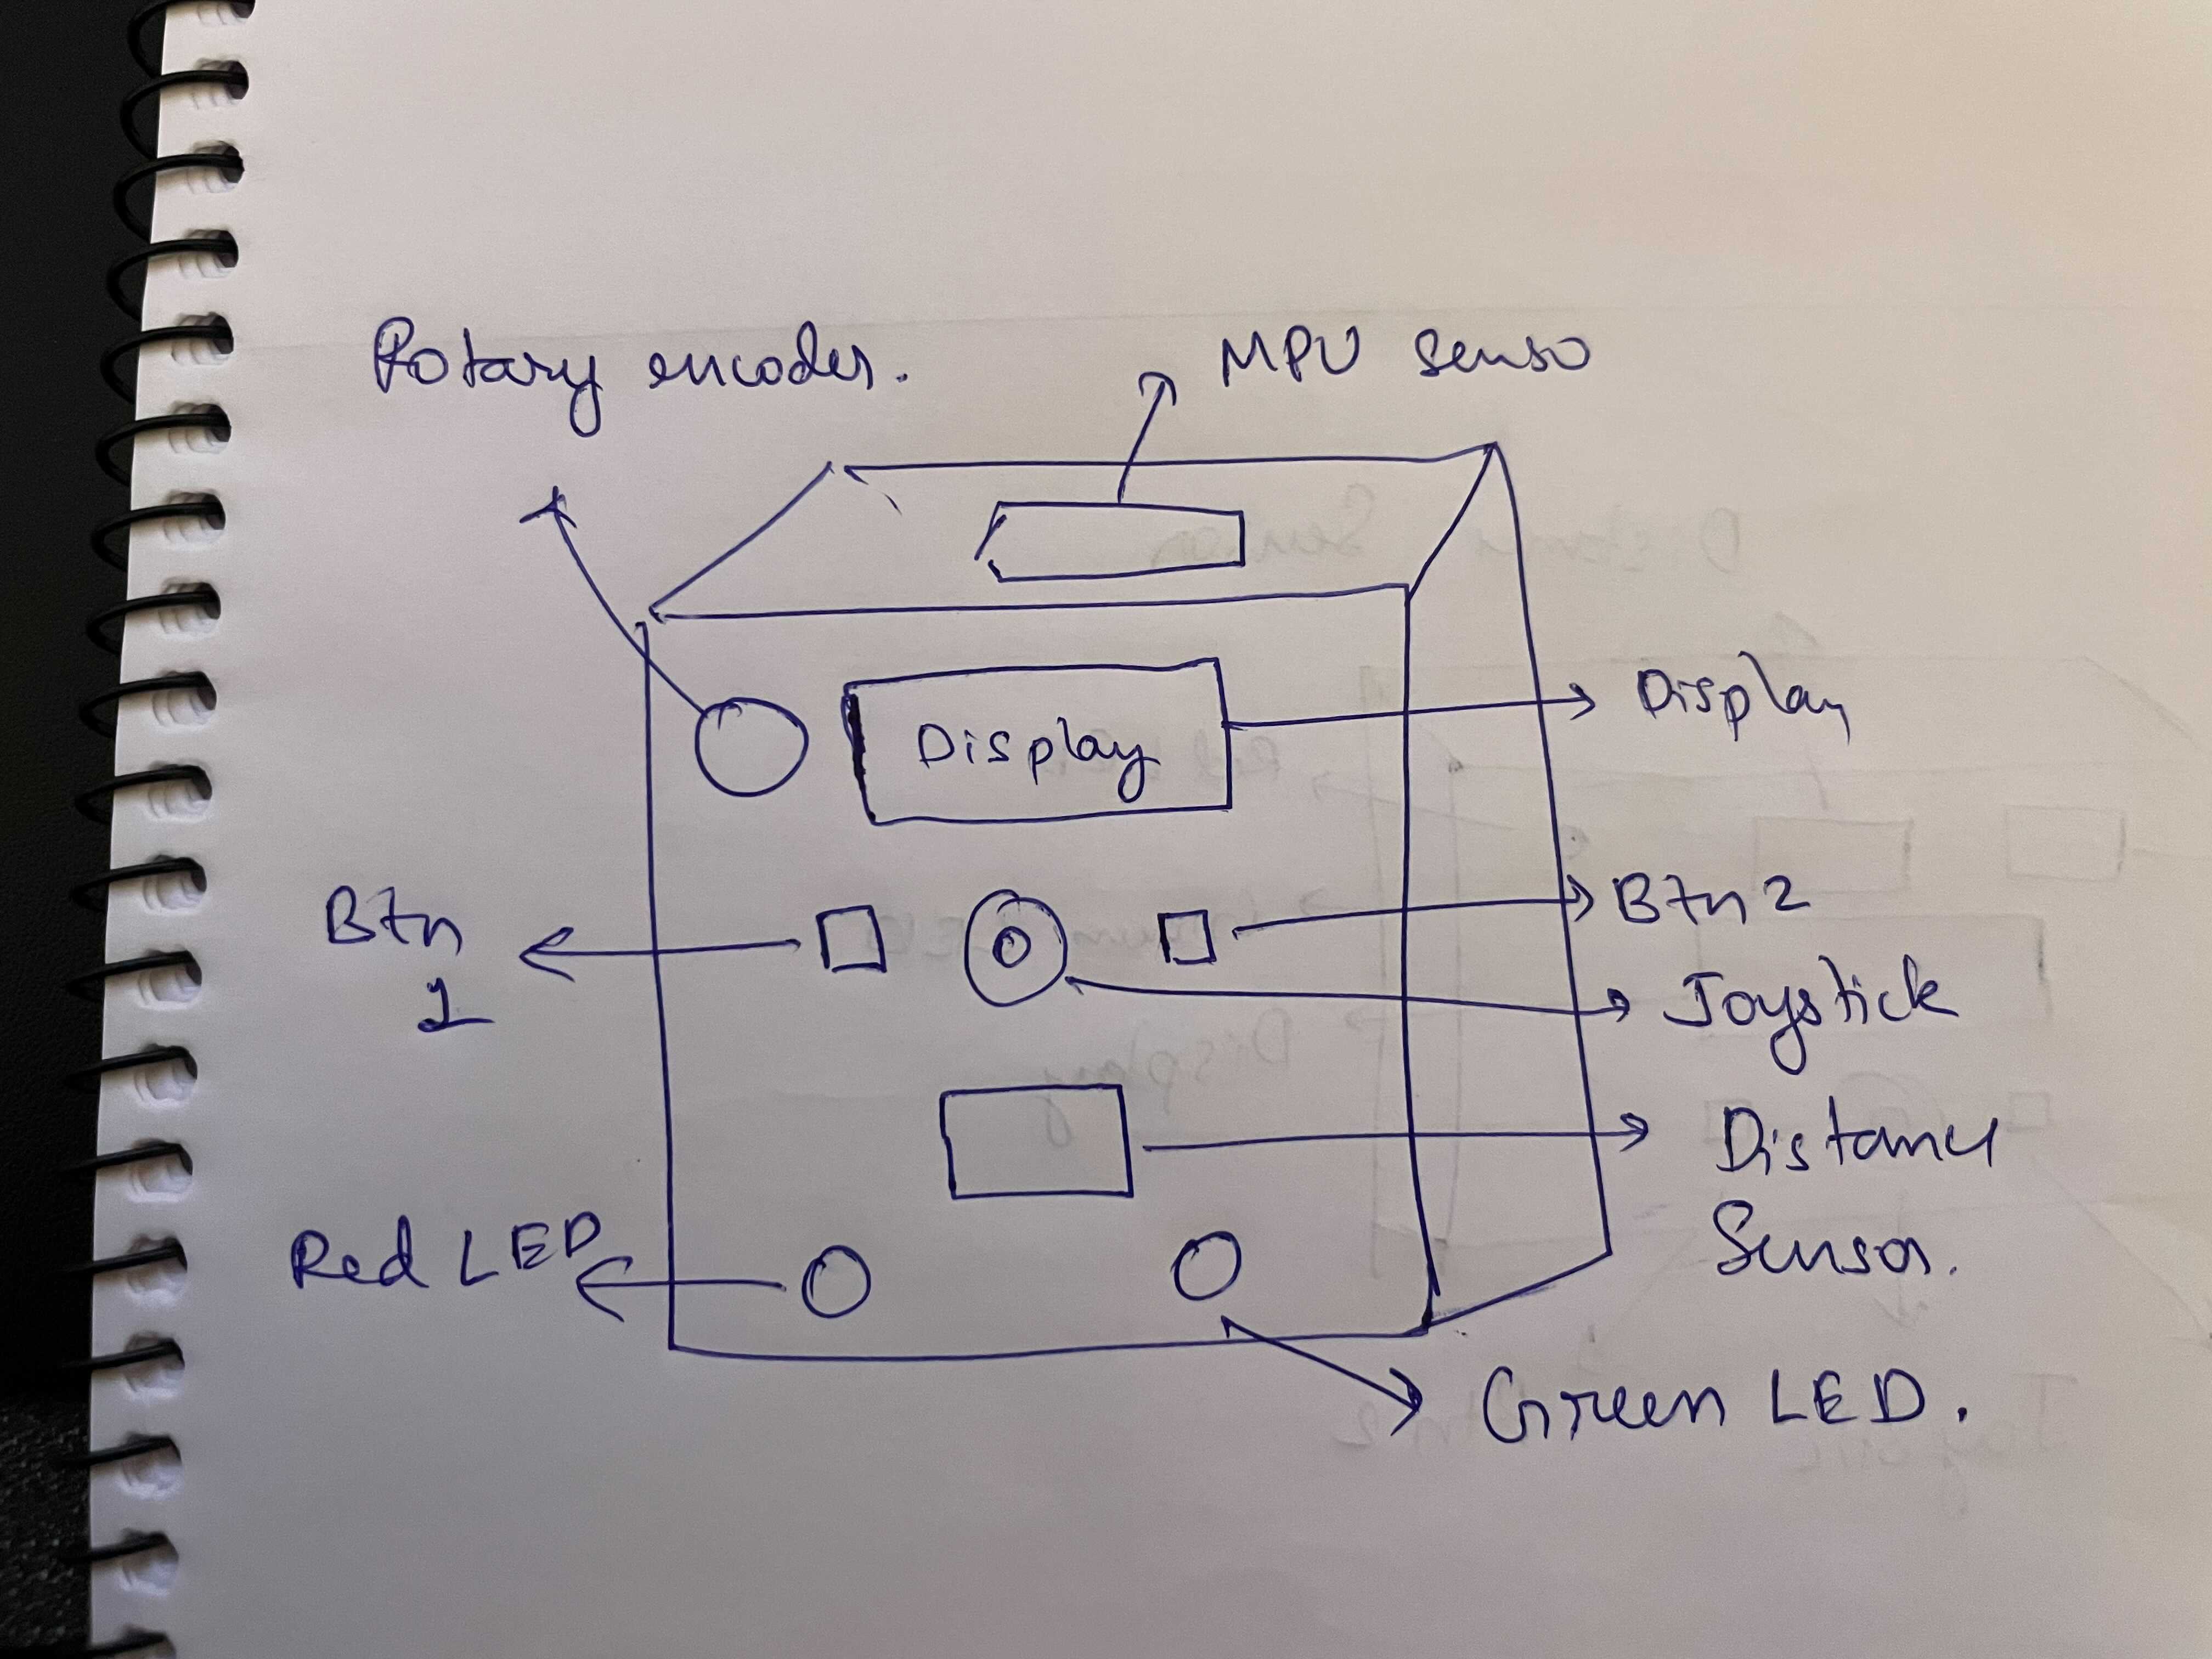 Rotary encoder.
MPU senso
Display
Display
Btn
1
Btn 2
Joystick
Distance
Sensor.
Red LED
Green LED.